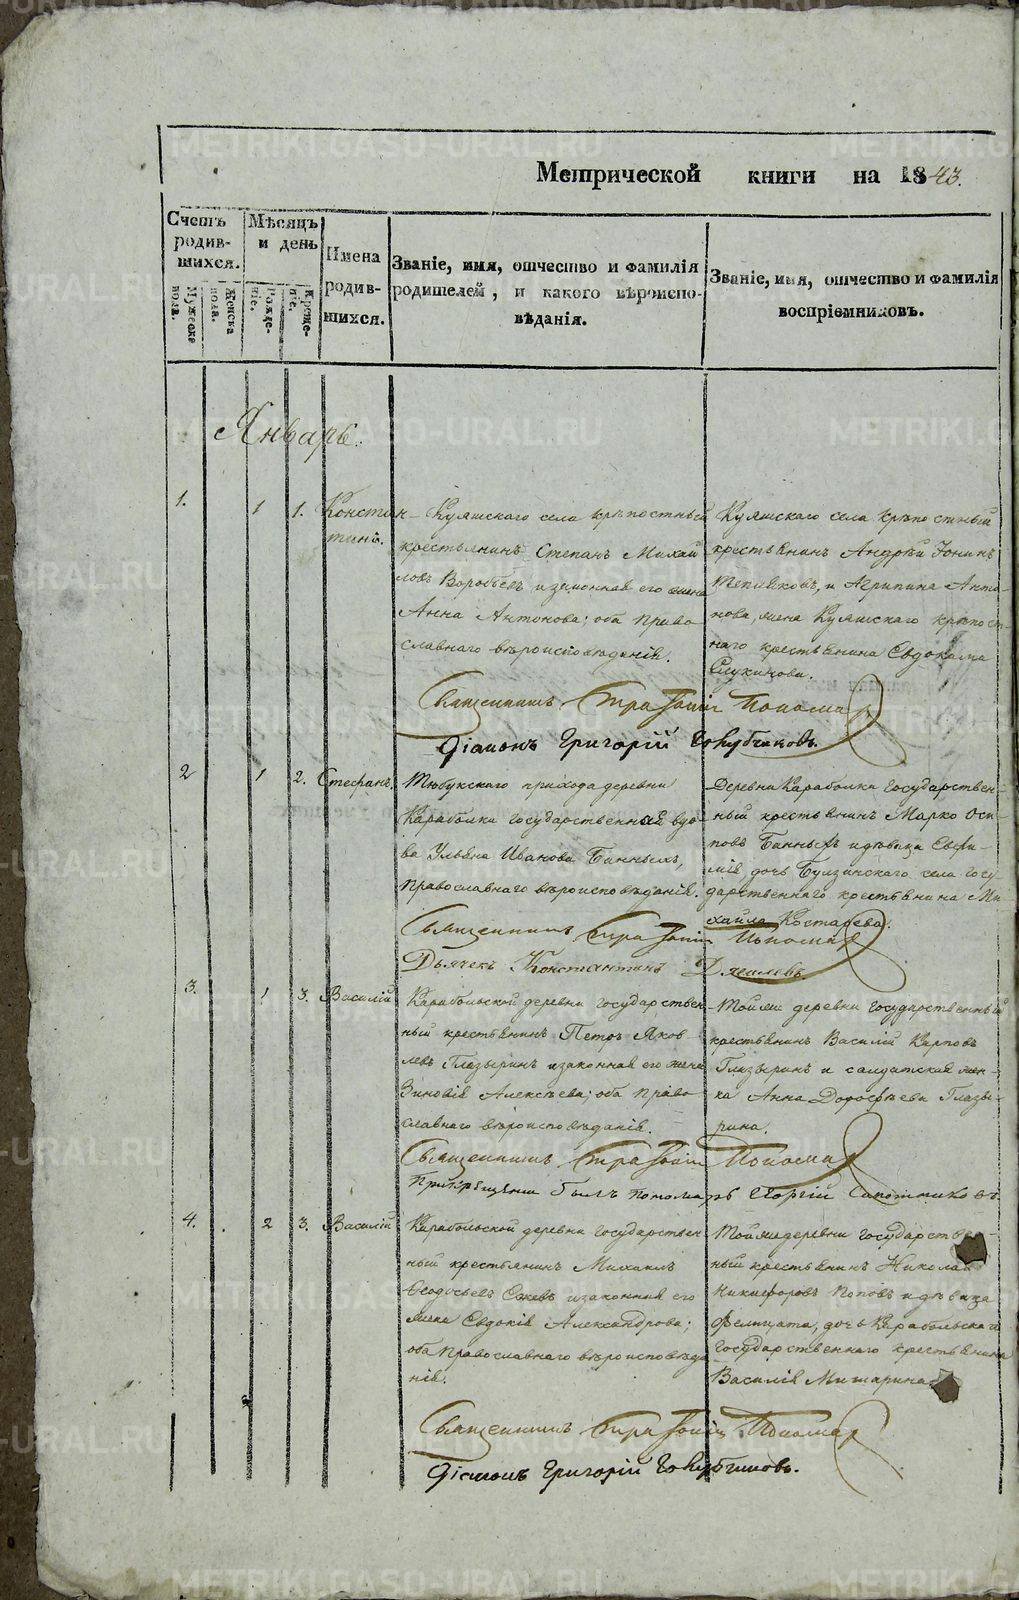 Метрической книги на 1843.
Счетъ родив-шихся.
Мужеска пола.
Женска пола.
Мѣсяцъ и день
Рожде-ніе.
Креще-ніе.
Имена родив-шихся.
Званіе, имя, отчество и фамилія
родителей, и какого вѣроиспо-
вѣданія.
Званіе, имя, отчество и фамилія
воспріемниковъ.
Январь.
1. 1 1. Констан-
тинъ.
Куяшскаго села крѣпостный
крестьянинъ Степанъ Михай
ловъ Воробьевъ и законная его жена
Анна Антонова; оба право
славнаго вѣроисповѣданія.
Куяшскаго села крѣпостный
крестьянинъ Андрѣй Іонинъ
и Агрипина Анто-
нова, жена Куяшскаго крѣпост-
наго крестьянина Евдокима
Священникъ
Діаконъ Григорій
2 1 2. Стефанъ.
Тюбукскаго прихода деревни
Караболки государственная вдо-
ва Ульяна Иванова Банныхъ,
православнаго вѣроисповѣданія.
Деревни Караболки государствен-
ный крестьянинъ Марко Оси-
повъ Банныхъ и дѣвица Евфи-
мія, дочь Булзинскаго села госу-
дарственнаго крестьянина Ми-
хайла Костарева.
Священникъ
Дьячекъ Константинъ Дягилевъ
3. 1 3. Василій
Карабольской деревни государствен
ный крестьянинъ Петръ Яков
левъ Глазыринъ и законная его жена
Зиновія Алексѣева; оба право-
славнаго вѣроисповѣданія.
Тойже деревни государственный
крестьянинъ Василій Карповъ
Глазыринъ и салдатская жен-
ка Анна Дорофѣева Глазы-
рина.
Священникъ
При крещеніи былъ пономарь Георгій Сапожниковъ
4. 2 3. Василій
Карабольской деревни государствен
ный крестьянинъ Михаилъ
Ѳеодосьевъ и законная его
жена Евдокія Александрова;
оба православнаго вѣроисповѣда
нія.
Тойже деревни государствен-
ный крестьянинъ Николай
Никифоровъ Поповъ и дѣвица
Фелицата, дочь Карабольскаго
государственнаго крестьянина
Василія Мишарина
Священникъ
Діаконъ Григорій
METRIKI.GASO-URAL.RU